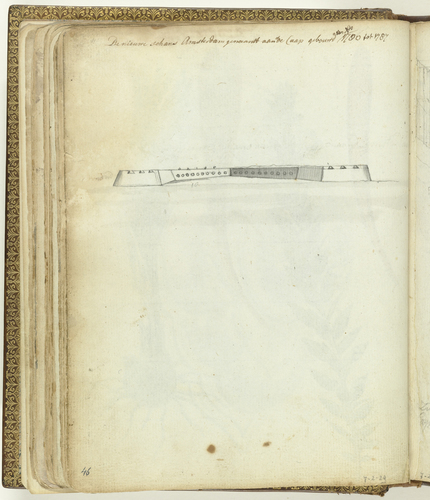 De nieuwe schans Amsterdam genaamt aan de Caap gebouwt van 1780 tot 1787
46